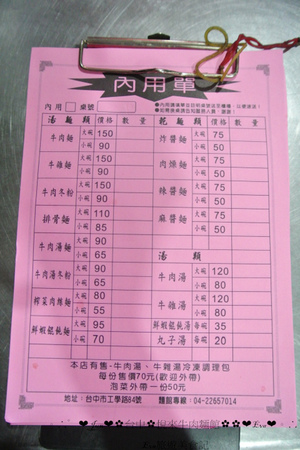 內用單
內用 桌號
湯麵類 價格 數量
牛肉麵 大碗 150
小碗 90
牛雜麵 大碗 150
小碗 90
牛肉冬粉 大碗 150
小碗 90
排骨麵 大碗 110
小碗 85
牛肉湯麵 大碗 90
小碗 65
牛肉湯冬粉 大碗 90
小碗 65
榨菜肉絲麵 大碗 80
小碗 55
鮮蝦餛飩麵 大碗 95
小碗 70
乾麵類 價格 數量
炸醬麵 大碗 75
小碗 50
肉燥麵 大碗 75
小碗 50
辣醬麵 大碗 75
小碗 50
麻醬麵 大碗 75
小碗 50
湯類
牛肉湯 大碗 120
小碗 80
牛雜湯 大碗 120
小碗 80
鮮蝦餛飩湯 每碗 35
丸子湯 小碗 20
本店有售-牛肉湯、牛雜湯冷凍調理包
每份售價70元(歡迎外帶)
泡菜外帶一份50元
地址:台中市工學路64號 麵館專線:04-22657014